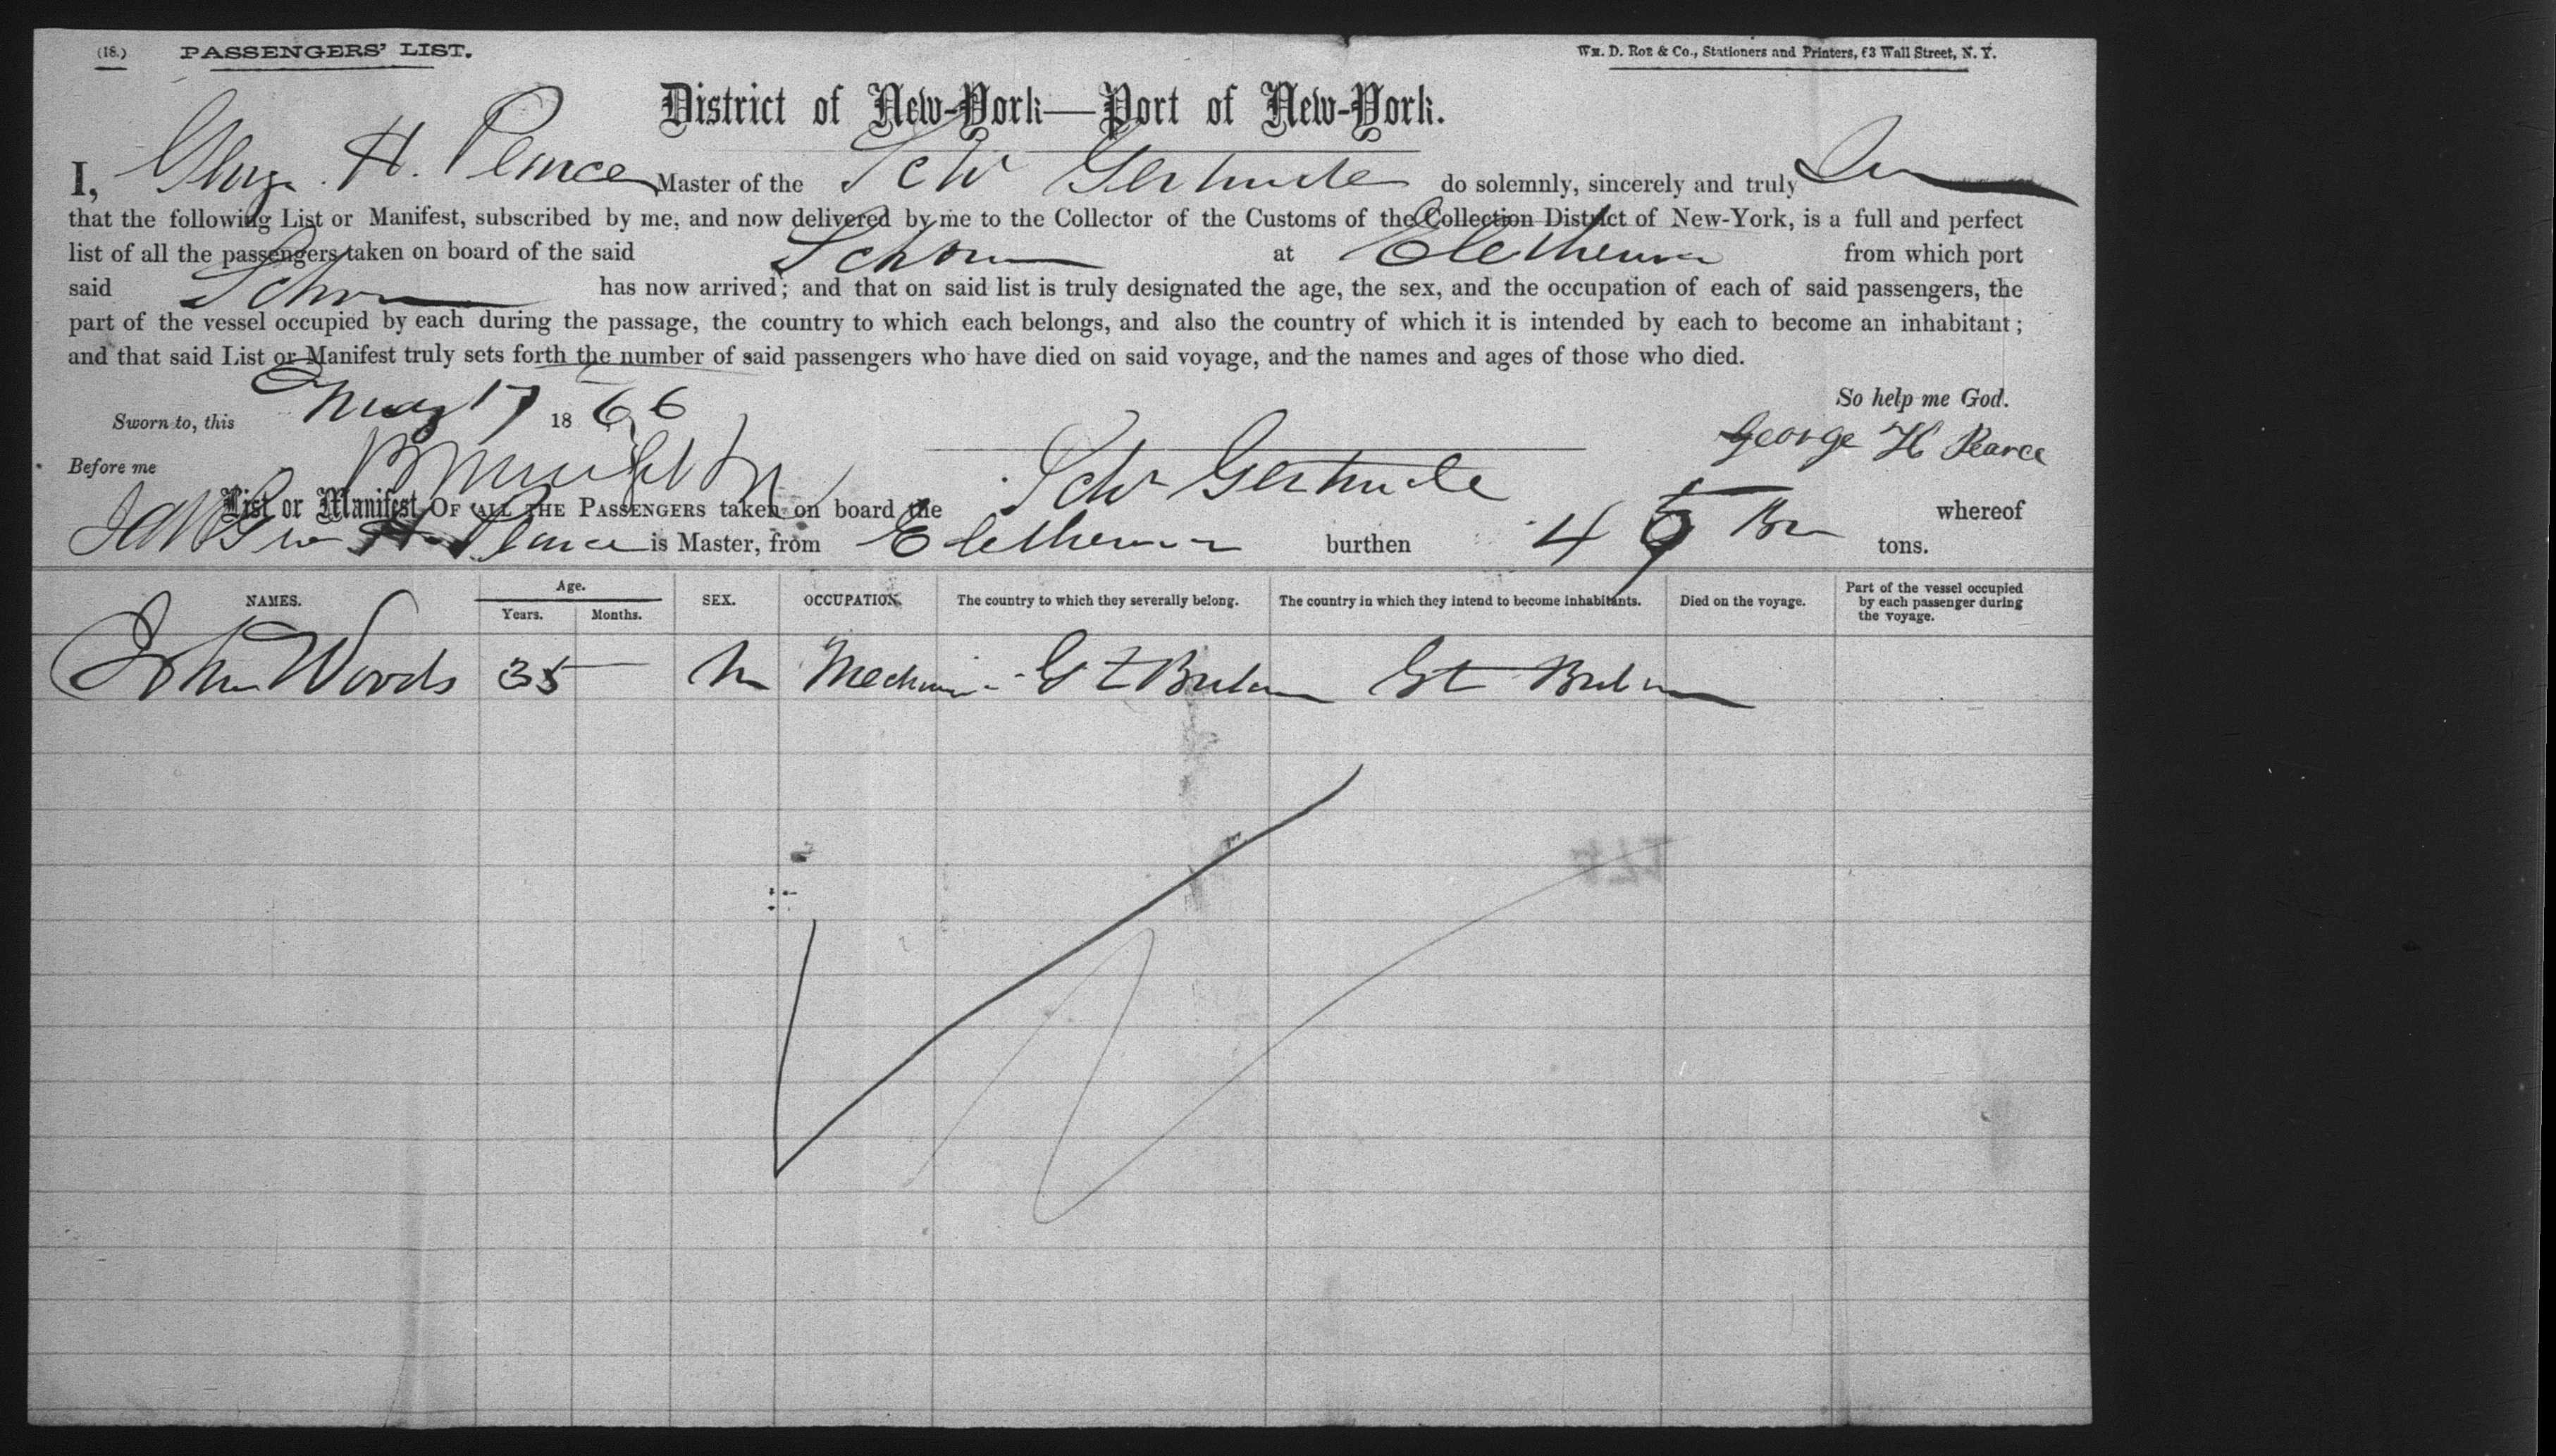 (18.) PASSENGERS' LIST. Wm. D. Roe & Co., Stationers and Printers, 63 Wall Street, N. Y.
District of New-York—Port of New-York.
I, George H. Pearce Master of the Schr Gertrude do solemnly, sincerely and truly
that the following List or Manifest, subscribed by me, and now delivered by me to the Collector of the Customs of the Collection District of New-York, is a full and perfect
list of all the passengers taken on board of the said Schr at Eletherua from which port
said Schr has now arrived; and that on said list is truly designated the age, the sex, and the occupation of each of said passengers, the
part of the vessel occupied by each during the passage, the country to which each belongs, and also the country of which it is intended by each to become an inhabitant;
and that said List or Manifest truly sets forth the number of said passengers who have died on said voyage, and the names and ages of those who died.
So help me God.
Sworn to, this May 17 1866
George H Pearce
Before me
List or Manifest OF ALL THE PASSENGERS taken on board the Schr Gertrude whereof
Geo H. Pearce is Master, from Eletherua burthen 45 tons.
NAMES. Age. Years. Months. SEX. OCCUPATION. The country to which they severally belong. The country in which they intend to become inhabitants. Died on the voyage. Part of the vessel occupied by each passenger during the voyage.
John Woods 35 M Mechanic Gt Britain Gt Britain